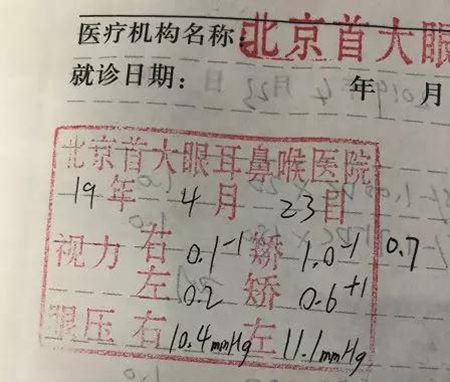 医疗机构名称:北京首大眼
就诊日期: 年 月
北京首大眼耳鼻喉医院
19年 4月 23日
视力 右 0.1⁻¹ 矫 1.0⁻¹ 0.7
左 0.2 矫 0.6⁺¹
眼压 右 10.4mmHg 左 11.1mmHg